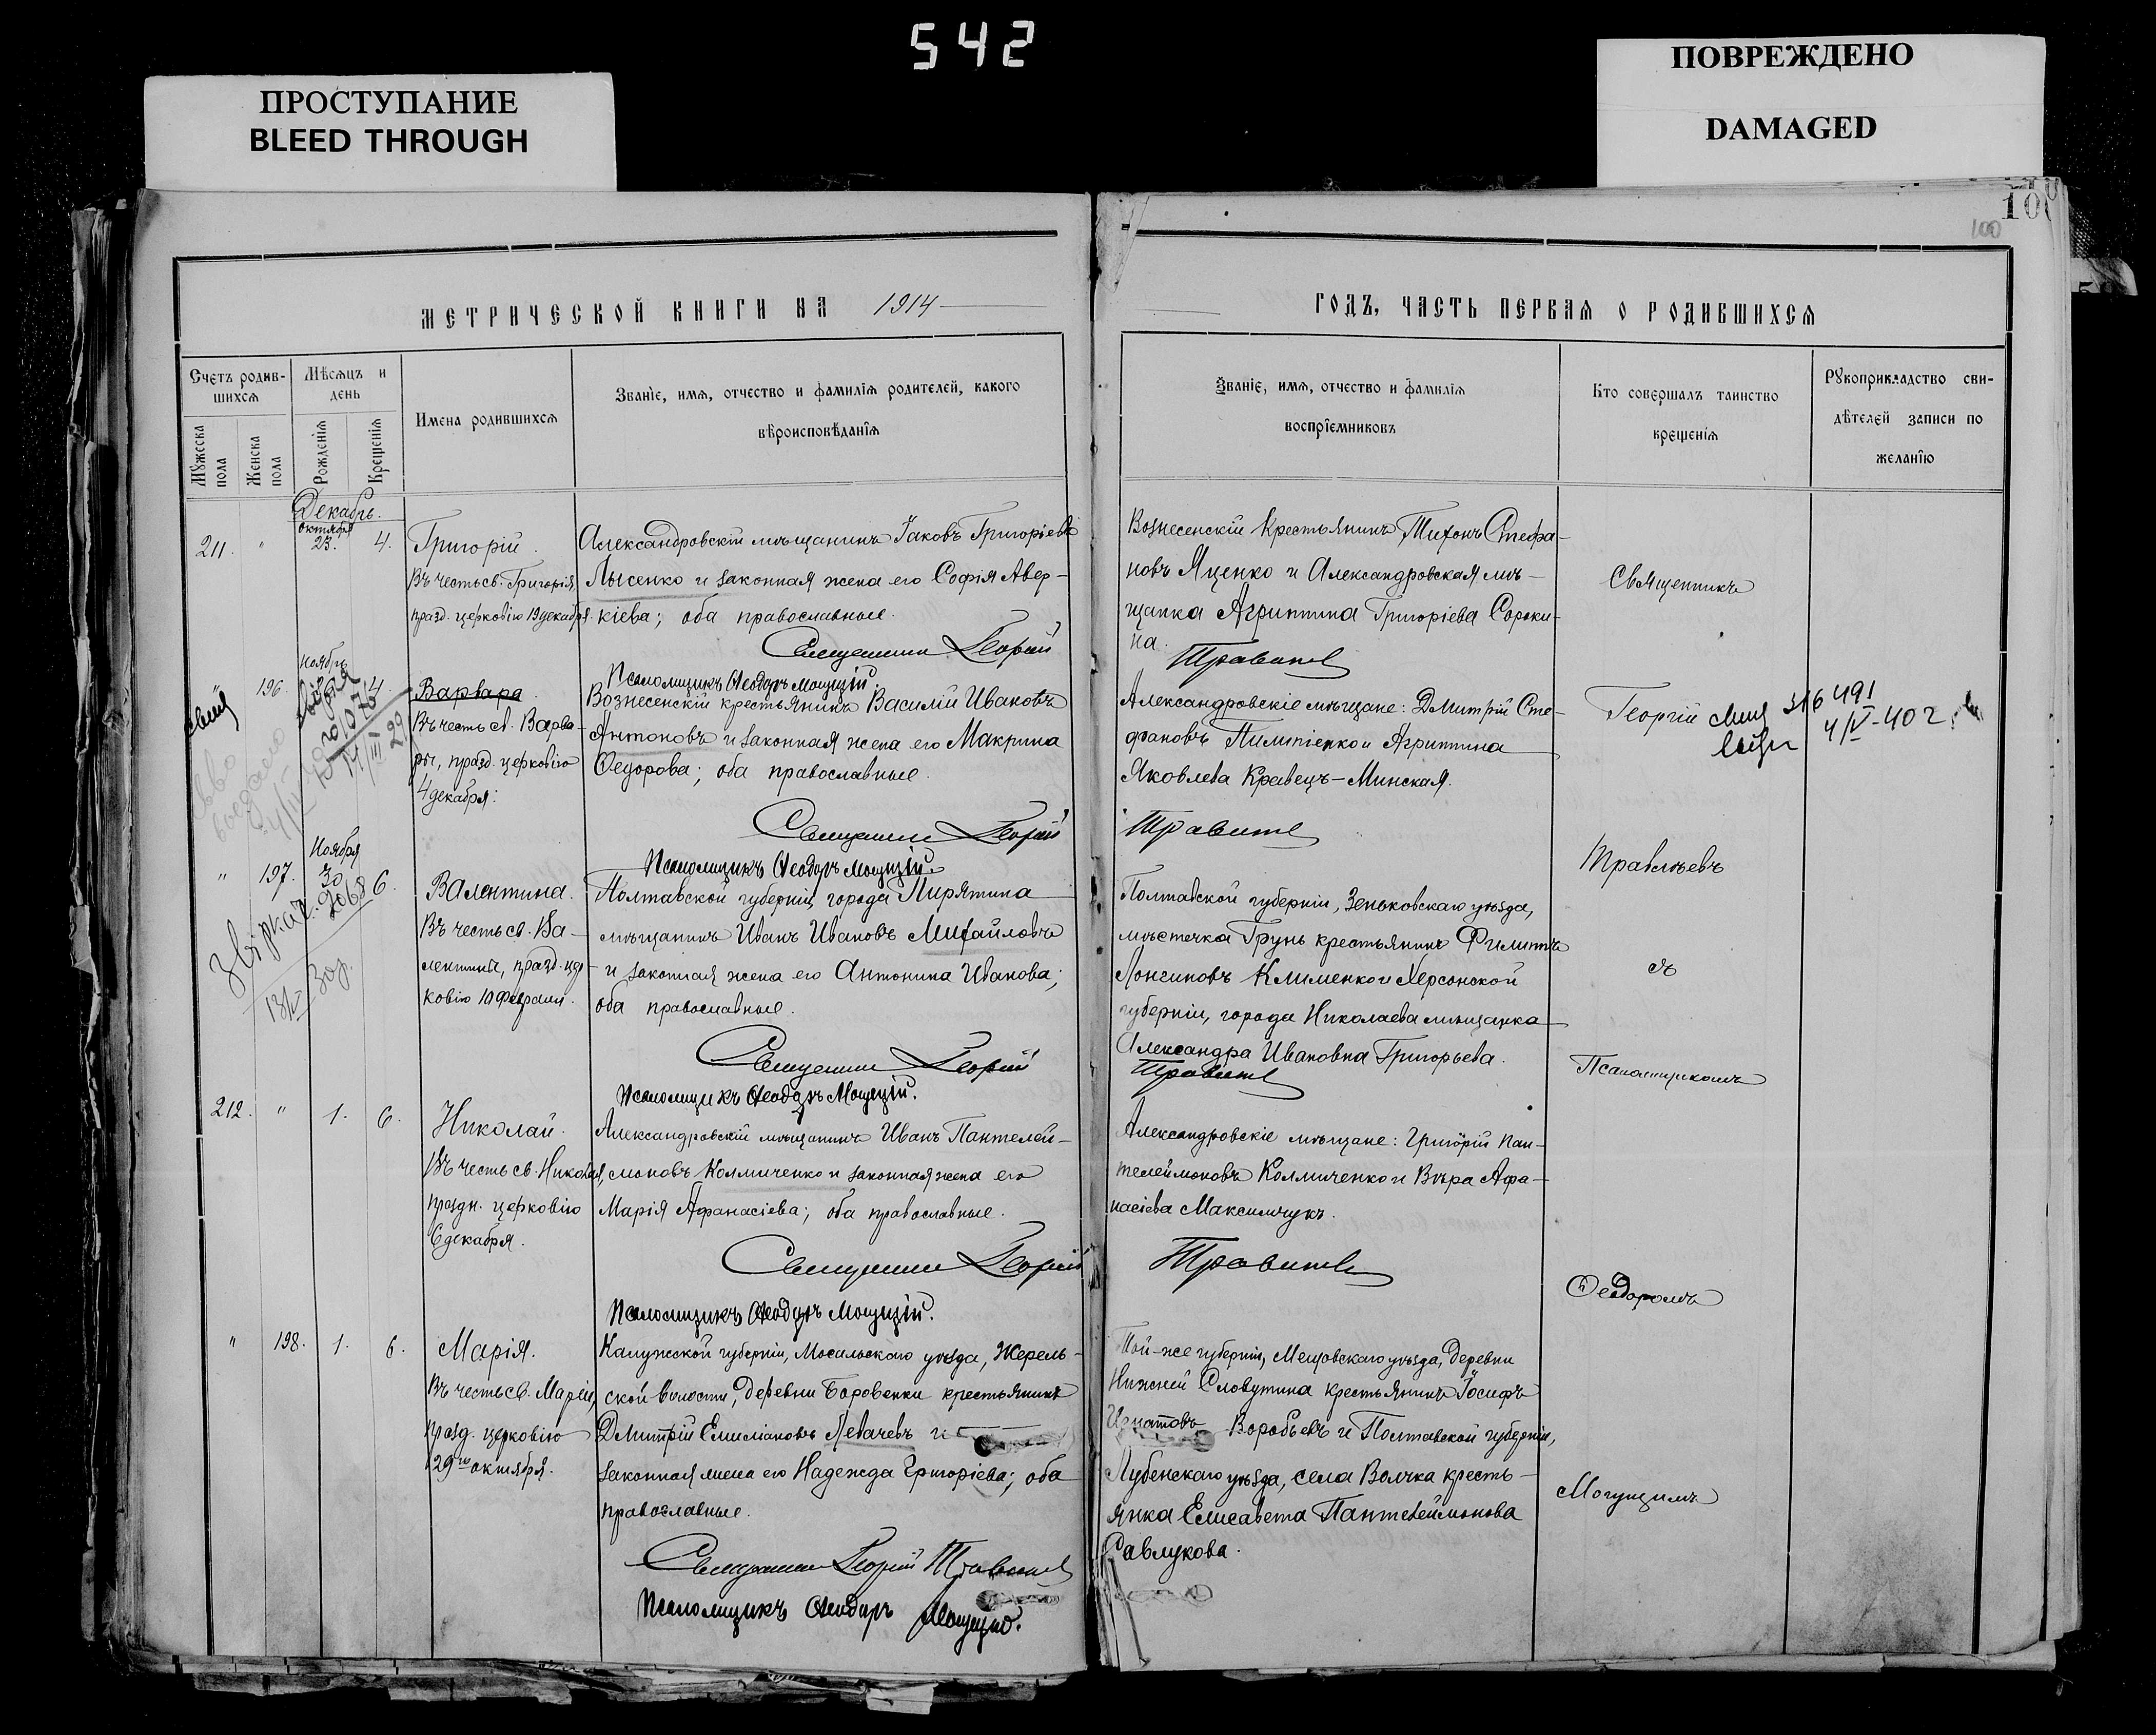 542
ПРОСТУПАНИЕ
BLEED THROUGH
ПОВРЕЖДЕНО
DAMAGED
100
100
МЕТРИЧЕСКОЙ КНИГИ НА 1914
ГОДЪ, ЧАСТЬ ПЕРВАЯ О РОДИВШИХСЯ
Счетъ родив-
шихся
Мѣсяцъ и
день
Мужеска
пола
Женска
пола
Рожденія
Крещенія
Имена родившихся
Званіе, имя, отчество и фамилія родителей, какого
вѣроисповѣданія
Званіе, имя, отчество и фамилія
воспріемниковъ
Кто совершалъ таинство
крещенія
Рукоприкладство сви-
дѣтелей записи по
желанію
Декабрь.
211. " октября 23. 4.
Григорій.
Въ честь св. Григорія,
празд. церковію 19 декабря.
Александровскій мѣщанинъ Іаковъ Григорьевъ
Лысенко и законная жена его Софія Авер-
кіева; оба православные.
Священник Георгий
Псаломщикъ Ѳеодоръ Мощуцій.
Вознесенскій крестьянинъ Тихонъ Стефа-
новъ Яценко и Александровская мѣ-
щанка Агриппина Григоріева Сороки-
на.
Священникъ
196. Ноябрь 4.
Варвара.
Въ честь св. Варва-
ры, празд. церковію
4 декабря.
Вознесенскій крестьянинъ Василій Ивановъ
Антоновъ и законная жена его Макрина
Ѳедорова; оба православные.
Священник Георгий
Псаломщикъ Ѳеодоръ Мощуцій.
Александровскіе мѣщане: Дмитрій Сте-
фановъ Пилипенко и Агриппина
Яковлева Кравецъ-Минская.
Георгій
316491
4/IV-40 г.
Травлѣевъ
" 197. Ноября 30 6.
Валентина.
Въ честь св. Ва-
лентины, празд. цер-
ковію 10 февраля.
Полтавской губерніи, города Пирятина
мѣщанинъ Иванъ Ивановъ Михайловъ
и законная жена его Антонина Иванова;
оба православные.
Священник Георгий
Псаломщикъ Ѳеодоръ Мощуцій.
Полтавской губерніи, Зеньковскаго уѣзда,
мѣстечка Грунь крестьянинъ Филиппъ
Лонгиновъ Клименко и Херсонской
губерніи, города Николаева мѣщанка
Александра Ивановна Григорьева.
съ
Псаломщикомъ
212. " 1. 6.
Николай.
Въ честь св. Николая,
праздн. церковію
6 декабря.
Александровскій мѣщанинъ Иванъ Пантелей-
моновъ Колмиченко и законная жена его
Марія Афанасіева; оба православные.
Священник Георгий
Псаломщикъ Ѳеодоръ Мощуцій.
Александровскіе мѣщане: Григорій Пан-
телеймоновъ Колмиченко и Вѣра Афа-
насіева Максимчукъ.
Ѳеодоромъ
" 198. 1. 6.
Марія.
Въ честь св. Маріи,
празд. церковію
29го октября.
Калужской губерніи, Мосальскаго уѣзда, Жерель-
ской волости, деревни Боровенки крестьянинъ
Дмитрій Емиліановъ Левачевъ и
законная жена его Надежда Григоріева; оба
православные.
Священник Георгий
Псаломщикъ Ѳеодоръ Мощуцій.
Той-же губерніи, Мещовскаго уѣзда, деревни
Нижней Словутина крестьянинъ Іосифъ
Игнатовъ Воробьевъ и Полтавской губерніи,
Лубенскаго уѣзда, села Волчка кресть-
янка Елисавета Пантелеймонова
Равлукова.